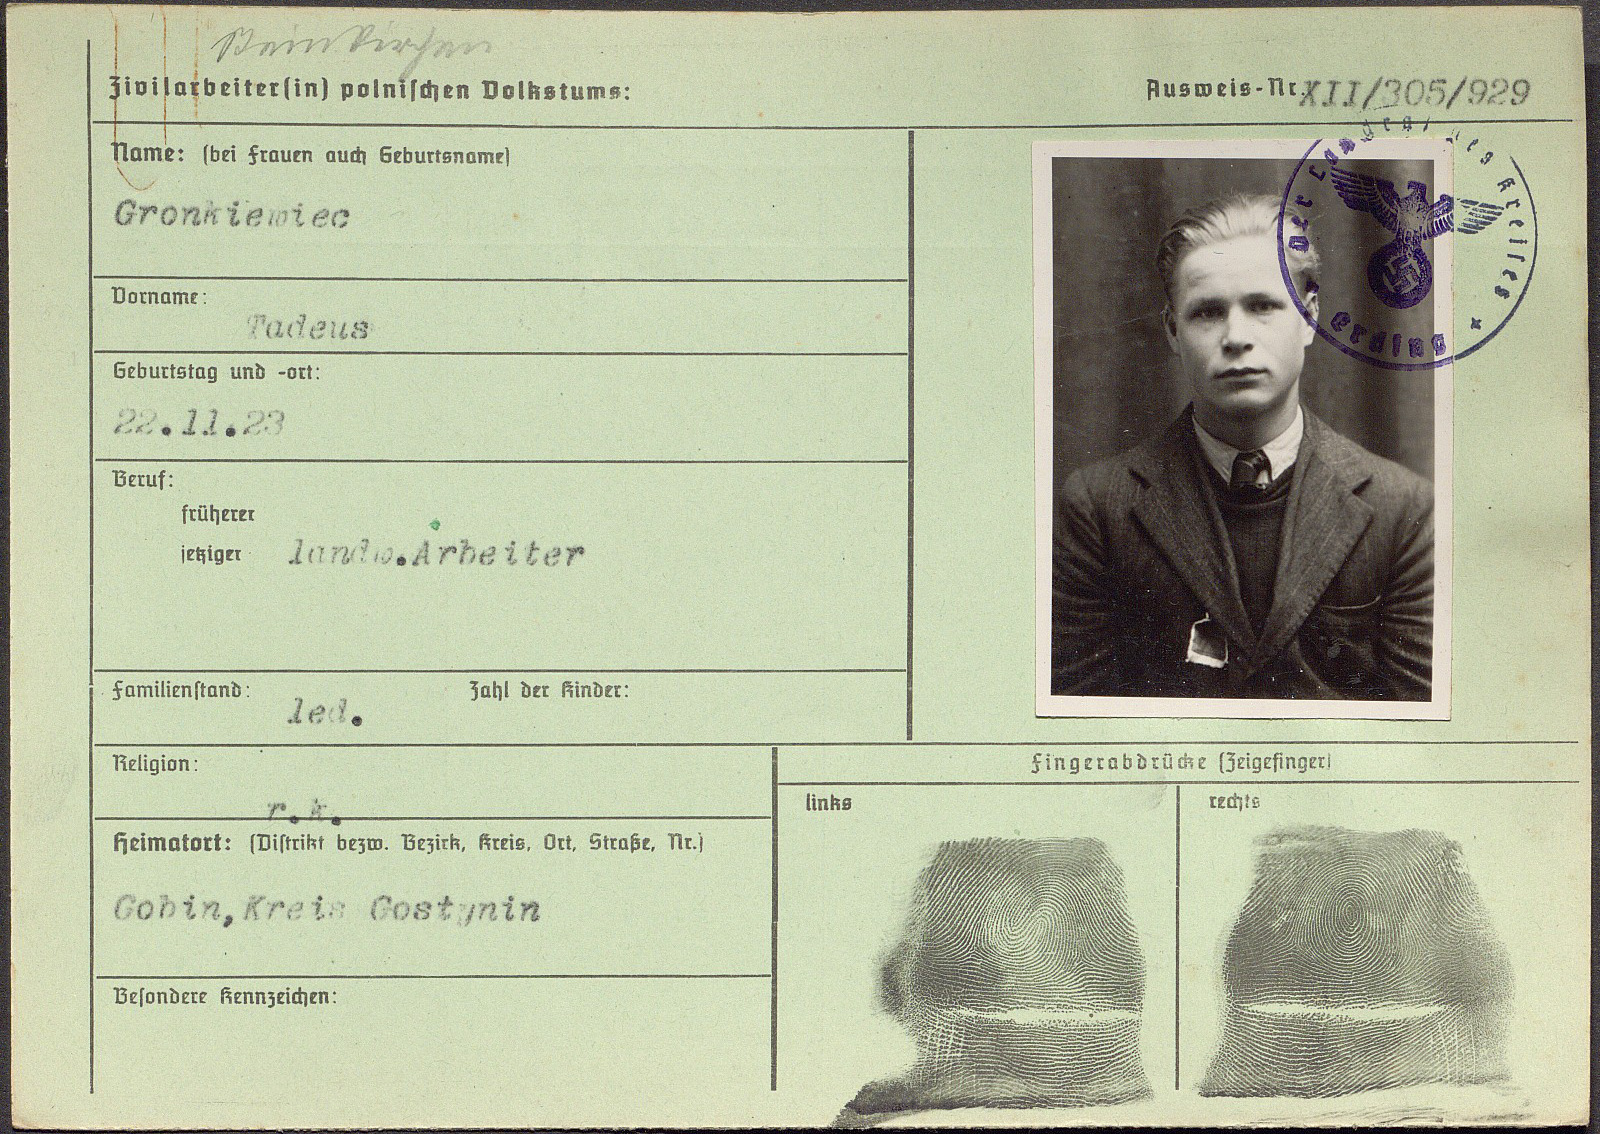 Steinkirchen
Zivilarbeiter(in) polnischen Volkstums:
Ausweis-Nr. XII/305/929
Name: (bei Frauen auch Geburtsname)
Gronkiewiec
Vorname:
Tadeus
Geburtstag und -ort:
22.11.23
Beruf:
früherer
jetziger landw.Arbeiter
Familienstand: led.
Zahl der Kinder:
Religion:
r.k.
Heimatort: (Distrikt bezw. Bezirk, Kreis, Ort, Straße, Nr.)
Gobin,Kreis Gostynin
Besondere Kennzeichen:
Der Landrat des Kreises
Erding
Fingerabdrücke (Zeigefinger)
links
rechts